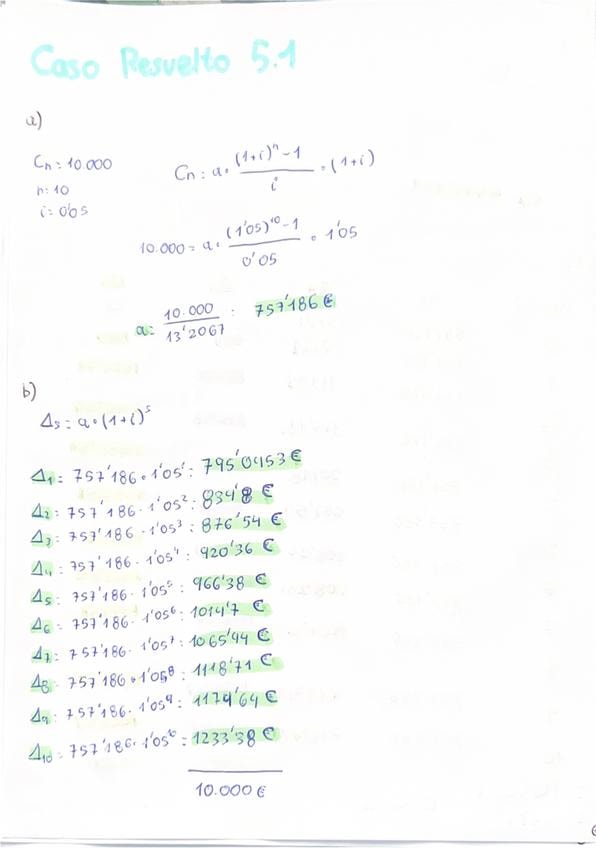 Caso Resuelto 5.1
a)
Cn = 10.000
n: 10
i = 0'05
Cn = a · ((1+i)^n - 1) / i · (1+i)
10.000 = a · ((1'05)^10 - 1) / 0'05 · 1'05
a = 10.000 / 13'2067 : 757'186 €
b)
Δs = a · (1+i)^s
Δ1 = 757'186 · 1'05^1 : 795'0453 €
Δ2 = 757'186 · 1'05^2 : 834'8 €
Δ3 = 757'186 · 1'05^3 : 876'54 €
Δ4 = 757'186 · 1'05^4 : 920'36 €
Δ5 = 757'186 · 1'05^5 : 966'38 €
Δ6 = 757'186 · 1'05^6 : 1014'7 €
Δ7 = 757'186 · 1'05^7 : 1065'44 €
Δ8 = 757'186 · 1'05^8 : 1118'71 €
Δ9 = 757'186 · 1'05^9 : 1174'64 €
Δ10 = 757'186 · 1'05^10 = 1233'38 €
10.000 €